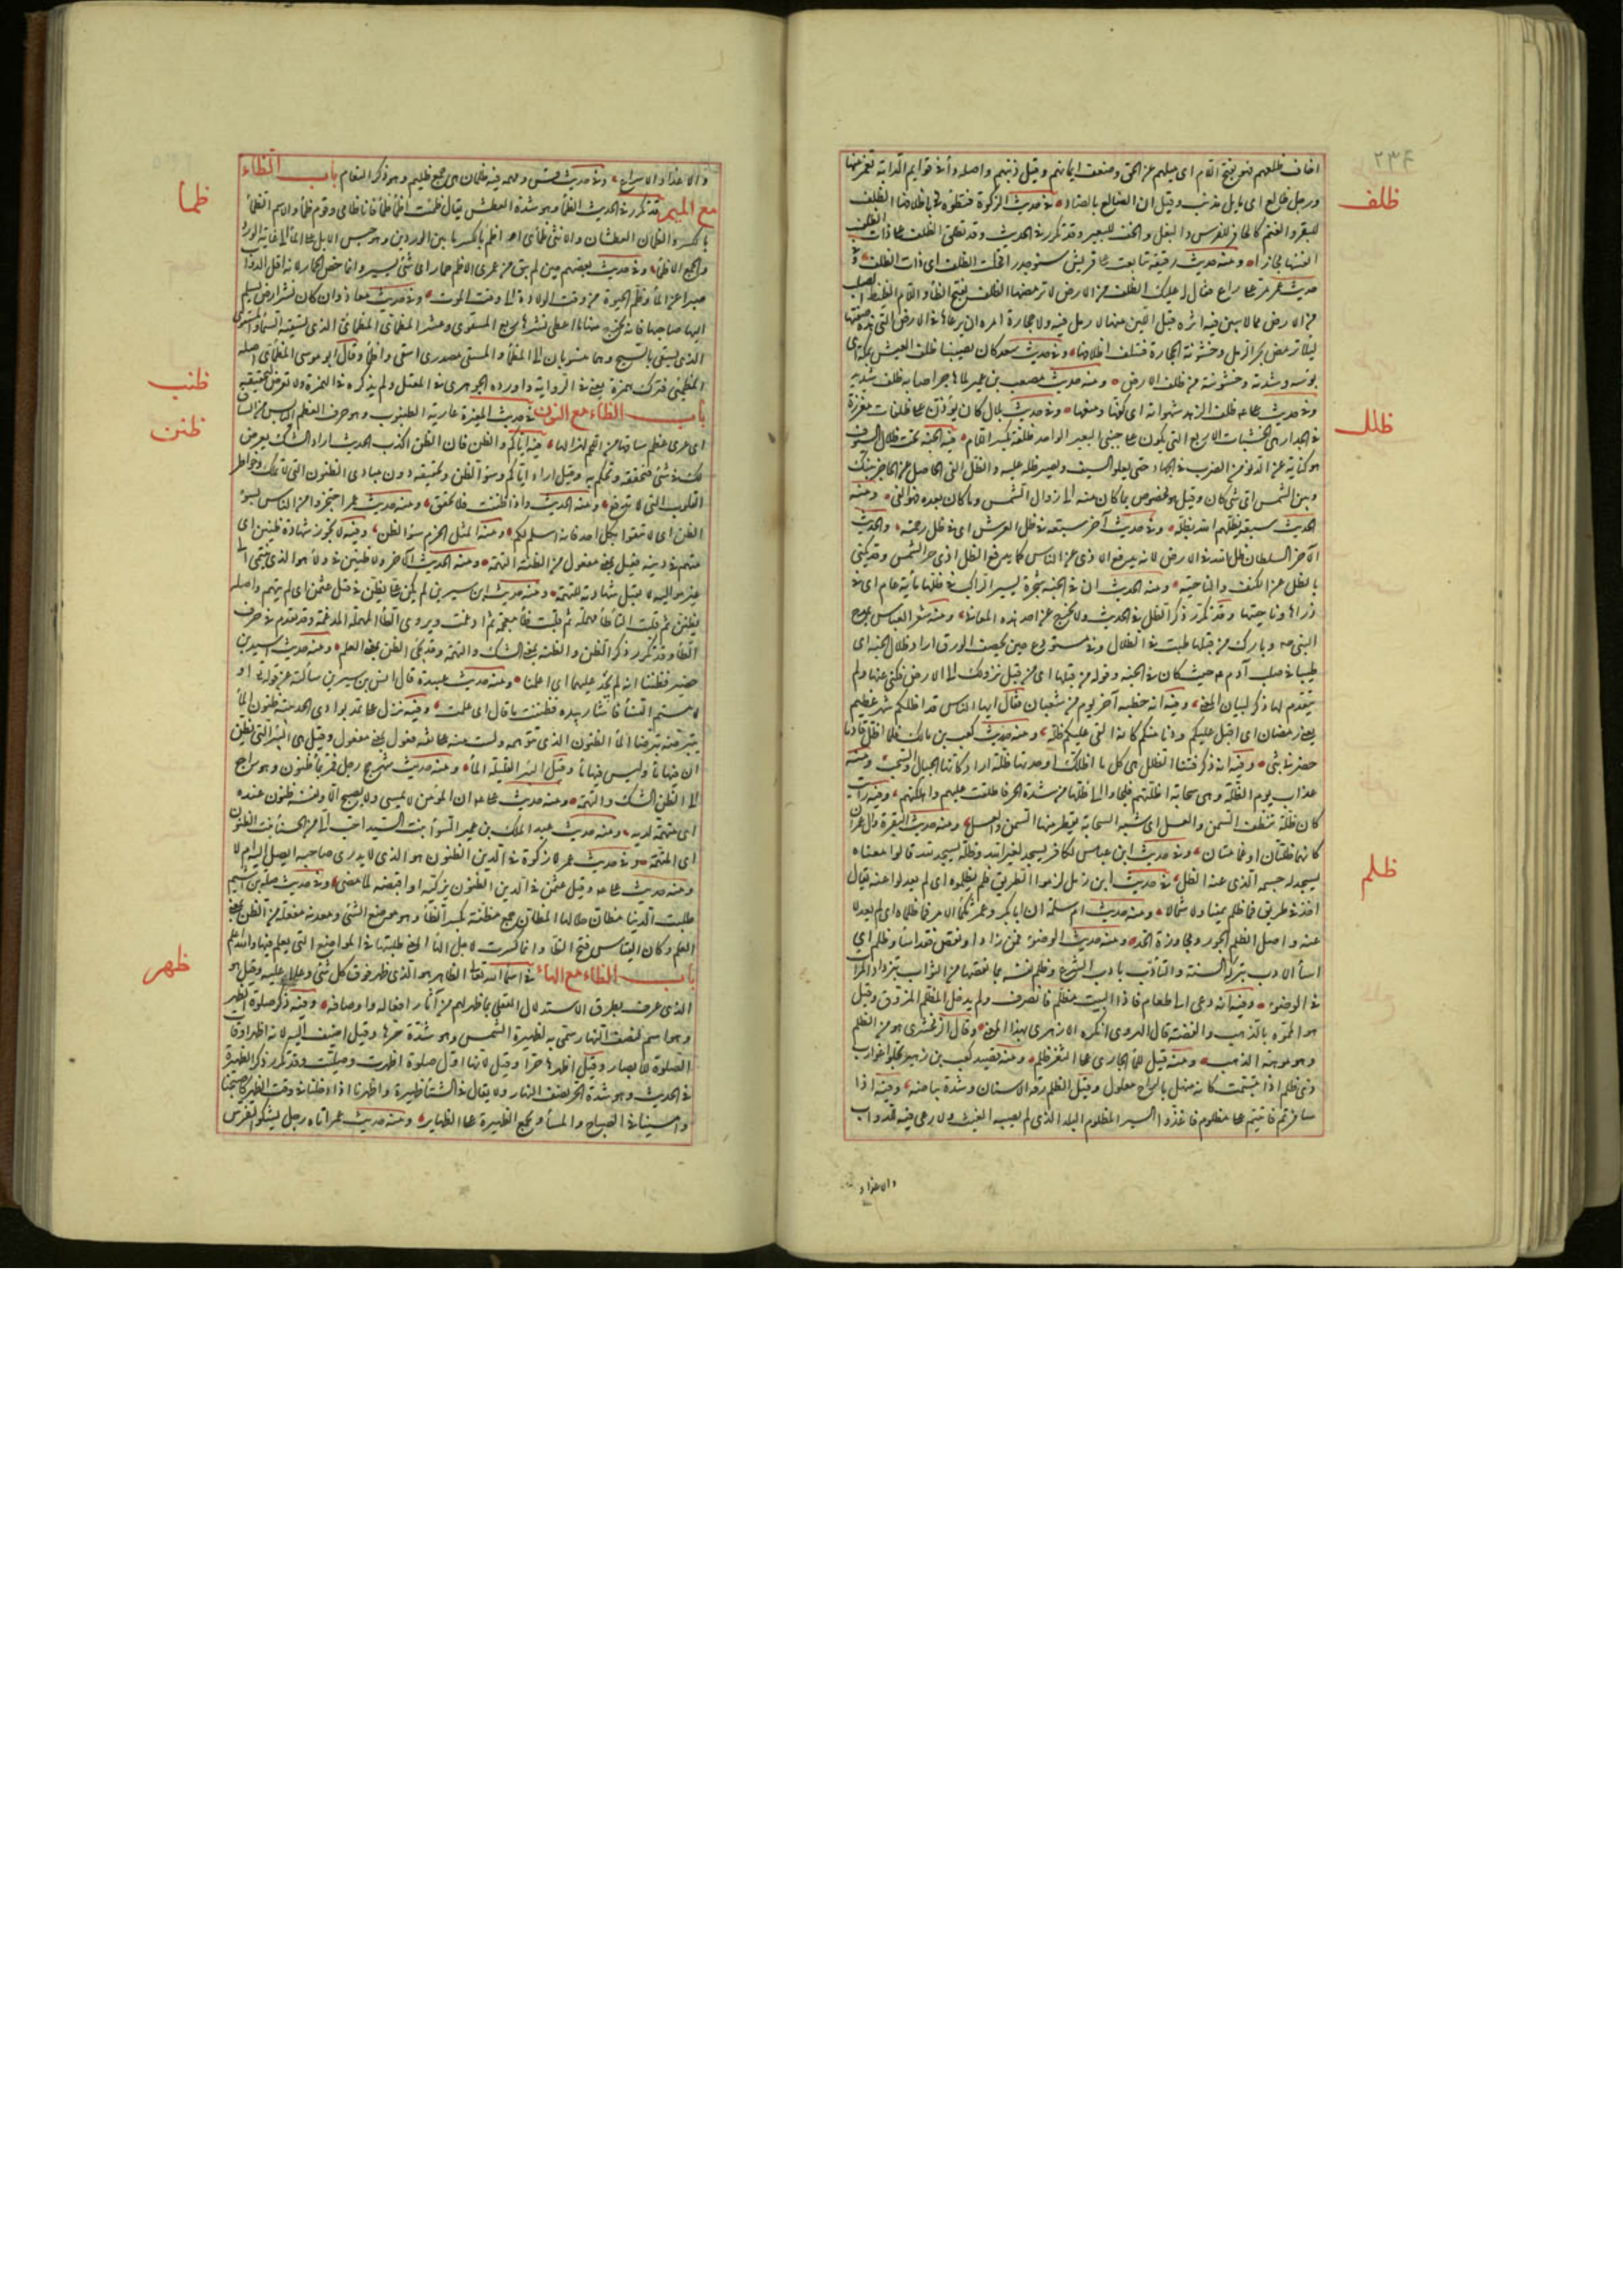 ٢٣٤
اخاف ظلعهم هو بفتح اللام اى ميلهم عن الحق وضعف ايمانهم وقيل ذنبهم واصله داء فى قوايم الدابة تغمز منها
ظلف
ورجل ظالع اى مايل مذنب وقيل ان المايل بالضاد فى حديث الزكوة فتطؤه باظلافها الظلف
للبقر والغنم كالحافر للفرس والبغل والخف للبعير وقد تكرر فى الحديث وقد تطلق الظلف على ذات الظلف
انفسها مجازا ومنه حديث رقيقة تتابعت على قريش سنو جدب اقحلت الظلف اى ذات الظلف وفى
حديث عمر مر على راع فقال له عليك الظلف من الارض لا ترمضها الظلف بفتح الظاء واللام الغليظ الصلب
من الارض مما لا يبين فيه اثر وقيل اللين منها مما لا رمل فيه ولا حجارة امره ان يرعاها فى الارض التى هذه صفتها
ليلا ترمض بحر الرمل وخشونة الحجارة فتتلف اظلافها وفى حديث سعد كان يصيبنا ظلف العيش بمكة اى
بؤسه وشدته وخشونته من ظلف الارض ومنه حديث مصعب بن عمير لما هاجر اصابه ظلف شديد
وفى حديث على ظلف الزهد شهواته اى كفها ومنعها وفى حديث بلال كان يؤذن على ظلفات مغرزة
ظلل
فى الجدار هى الخشبات الاربع التى تكون على جنبى البعير الواحد ظلفة بكسر اللام فيه الجنة تحت ظلال السيوف
هو كناية عن الدنو من الضرب فى الجهاد حتى يعلوه السيف ويصير ظله عليه والظل الفى الحاصل من الحاجز بينك
وبين الشمس اى شى كان وقيل هو مخصوص بما كان منه الى زوال الشمس وما كان بعده فهو الفى ومنه
الحديث سبعة يظلهم الله بظله وفى حديث آخر سبعة فى ظل العرش اى فى ظل رحمته والحديث
الآخر السلطان ظل الله فى الارض لانه يدفع الاذى عن الناس كما يدفع الظل اذى حر الشمس وقد يكنى
بالظل عن الكنف والناحية ومنه الحديث ان فى الجنة شجرة يسير الراكب فى ظلها مأية عام اى فى
ذراها وناحيتها وقد تكرر ذكر الظل فى الحديث ولا يخرج عن احد هذه المعانى ومنه شعر العباس يمدح
النبى من قبلها طبت فى الظلال وفى مستودع حين يخصف الورق اراد ظلال الجنة اى
طيبا فى صلب آدم حيث كان فى الجنة وقوله من قبلها اى من قبل نزولك الى الارض فكنى عنها ولم
يتقدم لها ذكر لبيان المعنى وفيه انه خطب آخر يوم من شعبان فقال ايها الناس قد اظلكم شهر عظيم
يعنى رمضان اى اقبل عليكم ودنا منكم كانه القى عليكم ظله ومنه حديث كعب بن مالك فلما اظل قادما
حضرنى بثى وفيه انه ذكر فتنا كالظلل هى كل ما اظلك واحدتها ظلة اراد كانها الجبال والسحب ومنه
عذاب يوم الظلة وهى سحابة اظلتهم فلجاوا الى ظلها من شدة الحر فاطبقت عليهم واهلكتهم وفيه رأيت
كان ظلة تنطف السمن والعسل اى شبه السحابة يقطر منها السمن والعسل ومنه حديث البقرة وآل عمران
كانهما ظلتان او غمامتان وفى حديث ابن عباس الكافر يسجد لغير الله وظله يسجد لله قالوا معناه
ظلم
يسجد له جسمه الذى عنه الظل فى حديث ابن زمل لزموا الطريق فلم يظلموه اى لم يعدلوا عنه يقال
اخذ فى طريق فما ظلم يمينا ولا شمالا ومنه حديث ام سلمة ان ابا بكر وعمر ثكما الامر فما ظلماه اى لم يعدلا
عنه واصل الظلم الجور ومجاوزة الحد ومنه حديث الوضوء فمن زاد او نقص فقد اساء وظلم اى
اساء الادب بتركه السنة والتأدب بادب الشرع وظلم نفسه بما نقصها من الثواب بتزداد المرات
فى الوضوء وفيه انه دعى الى طعام فاذا البيت مظلم فانصرف ولم يدخل المظلم المزوق وقيل
هو المموه بالذهب والفضة قال الهروى انكره الازهرى بهذا المعنى وقال الزمخشرى هو من الظلم
وهو موهة الذهب ومنه قيل للماء الجارى على الثغر ظلم ومنه قصيد كعب بن زهير تجلو غوارب
ذى ظلم اذا ابتسمت كانه منهل بالراح معلول وقيل الظلم رقة الاسنان وشدة بياضها وفيه اذا
سافرتم فاتيتم على مظلوم فاغذوا السير المظلوم البلد الذى لم يصبه الغيث ولا رعى فيه للدواب
والاغذاذ
والاغذاذ الاسراع وفى حديث قس ومهمه فيه ظلمان هى جمع ظليم وهو ذكر النعام باب الظاء
ظمأ
مع الميم قد تكرر فى الحديث الظمأ وهو شدة العطش يقال ظمئت اظمأ ظمأ فانا ظامى وقوم ظماء والاسم الظمأ
بالكسر والظمآن العطشان والانثى ظمأى الظمأ بالكسر ما بين الوردين وهو حبس الابل عن الماء الى غاية الورد
والجمع الاظماء وفى حديث بعضهم حين لم يبق من عمرى الا ظمأ حمار اى شى يسير وانما خص الحمار لانه اقل الدواب
صبرا عن الماء وظمأ الحيوة من وقت الولادة الى وقت الموت وفى حديث معاذ وان كان نشر ارض يسلم
اليها صاحبها فانه يخرج منها ما اعطى نشرها ربع المسقوى وعشر المظمأى المظمأى الذى تسقيه السماء والمسقوى
الذى يسقى بالسيح وهما منسوبان الى المظمأ والمسقى مصدرى اسقى واظمأ وقال ابو موسى المظمأى اصله
ظنب
المظمئى فترك همزه يعنى فى الرواية واورده الجوهرى فى المعتل ولم يذكره فى الهمزة ولا تعرض لتخفيفه
باب الظاء مع النون فى حديث المغيرة عارية الظنبوب وهو حرف العظم اليابس من الساق
ظنن
اى عرى عظم ساقها من اللحم لهزالها فيه اياكم والظن فان الظن اكذب الحديث اراد الشك يعرض
لك فى شى فتحققه وتحكم به وقيل اراد اياكم وسوء الظن وتحقيقه دون مبادى الظنون التى لا تملك وخواطر
القلوب التى لا تدفع ومنه الحديث واذا ظننت فلا تحقق ومنه حديث عمر احتجزوا من الناس بسوء
الظن اى لا تثقوا بكل احد فانه اسلم لكم ومنه المثل الحزم سوء الظن وفيه لا تجوز شهادة ظنين اى
متهم فى دينه فعيل بمعنى مفعول من الظنة التهمة ومنه الحديث الآخر ولا ظنين فى ولاء هو الذى ينتمى الى
غير مواليه لا تقبل شهادته للتهمة ومنه حديث ابن سيرين لم يكن على يظن فى قتل عثمن اى لم يتهم واصله
يظتنن ثم قلبت التاء طاء مهملة ثم قلبت ظاء معجمة ثم ادغمت ويروى بالطاء المهملة المدغمة وقد تقدم فى حرف
الطاء وقد تكرر ذكر الظن والظنة بمعنى الشك والتهمة وقد يجى الظن بمعنى العلم ومنه حديث اسيد بن
حضير فظننا انه لم يجد عليهما اى علمنا ومنه حديث عبيدة قال انس بن سيرين سألته عن قوله تع او
لامستم النساء فاشار بيده فظننت ما قال اى علمت وفيه فنزل على ثمد بوادى الحديبية ظنون الماء
يتبرضه تبرضا الماء الظنون الذى تتوهمه ولست منه على ثقة فعول بمعنى مفعول وقيل هى البئر التى يظن
ان فيها ماء وليس فيها ماء وقيل البئر القليلة الماء ومنه حديث شهر حج رجل فمر بماء ظنون وهو راجع
الى الظن الشك والتهمة ومنه حديث على ان المؤمن لا يمسى ولا يصبح الا ونفسه ظنون عنده
اى متهمة لديه ومنه حديث عبد الملك بن عمير السوآء بنت السيد احب الى من الحسناء بنت الظنون
اى المتهمة وفى حديث عمر لا زكوة فى الدين الظنون هو الذى لا يدرى صاحبه ايصل اليه ام لا
ومنه حديث على وقيل عثمن فى الدين الظنون يزكيه اذا قبضه لما مضى وفى حديث صلة بن اشيم
طلبت الدنيا مظان حلالها المظان جمع مظنة بكسر الظاء وهو موضع الشى ومعدنه مفعلة من الظن بمعنى
العلم وكان القياس فتح الظاء وانما كسرت لاجل الهاء المعنى طلبتها فى المواضع التى يعلم فيها والله اعلم
ظهر
باب الظاء مع الهاء فى اسماء الله تعالى الظاهر هو الذى ظهر فوق كل شى وعلا عليه وقيل هو
الذى عرف بطرق الاستدلال العقلى بما ظهر لهم من آثار افعاله واوصافه وفيه ذكر صلوة الظهر
وهو اسم لنصف النهار سمى به لظهيرة الشمس وهو شدة حرها وقيل اضيف اليه لانه اظهر اوقات
الصلوة للابصار وقيل اظهرها حرا وقيل لانها اول صلوة اظهرت وصليت وقد تكرر ذكر الظهيرة
فى الحديث وهو شدة الحر نصف النهار ولا يقال فى الشتاء ظهيرة واظهرنا اذا دخلنا فى وقت الظهر كاصبحنا
وامسينا فى الصباح والمساء وتجمع الظهيرة على الظهاير ومنه حديث عمر اتاه رجل يشكو النقرس